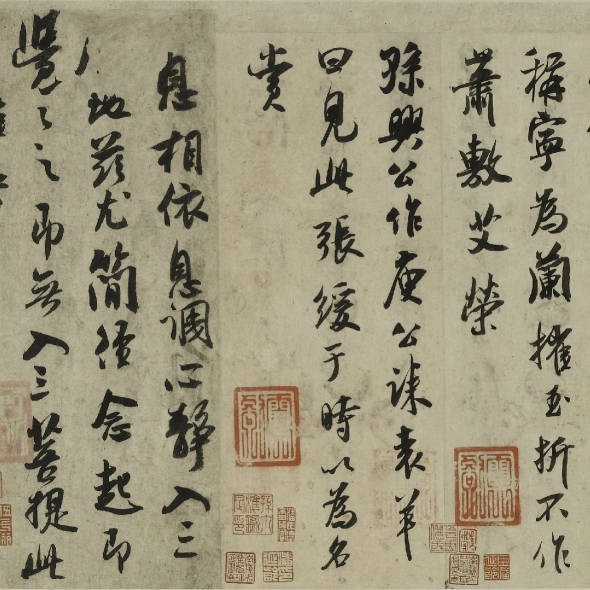 稱寧為蘭摧玉折不作
蕭敷艾榮
孫興公作庾公誄袁羊
曰見此張緩于時以為名
賞
息相依息調心靜入三
地茲尤簡徑念起即
覺々之即無入三菩提此